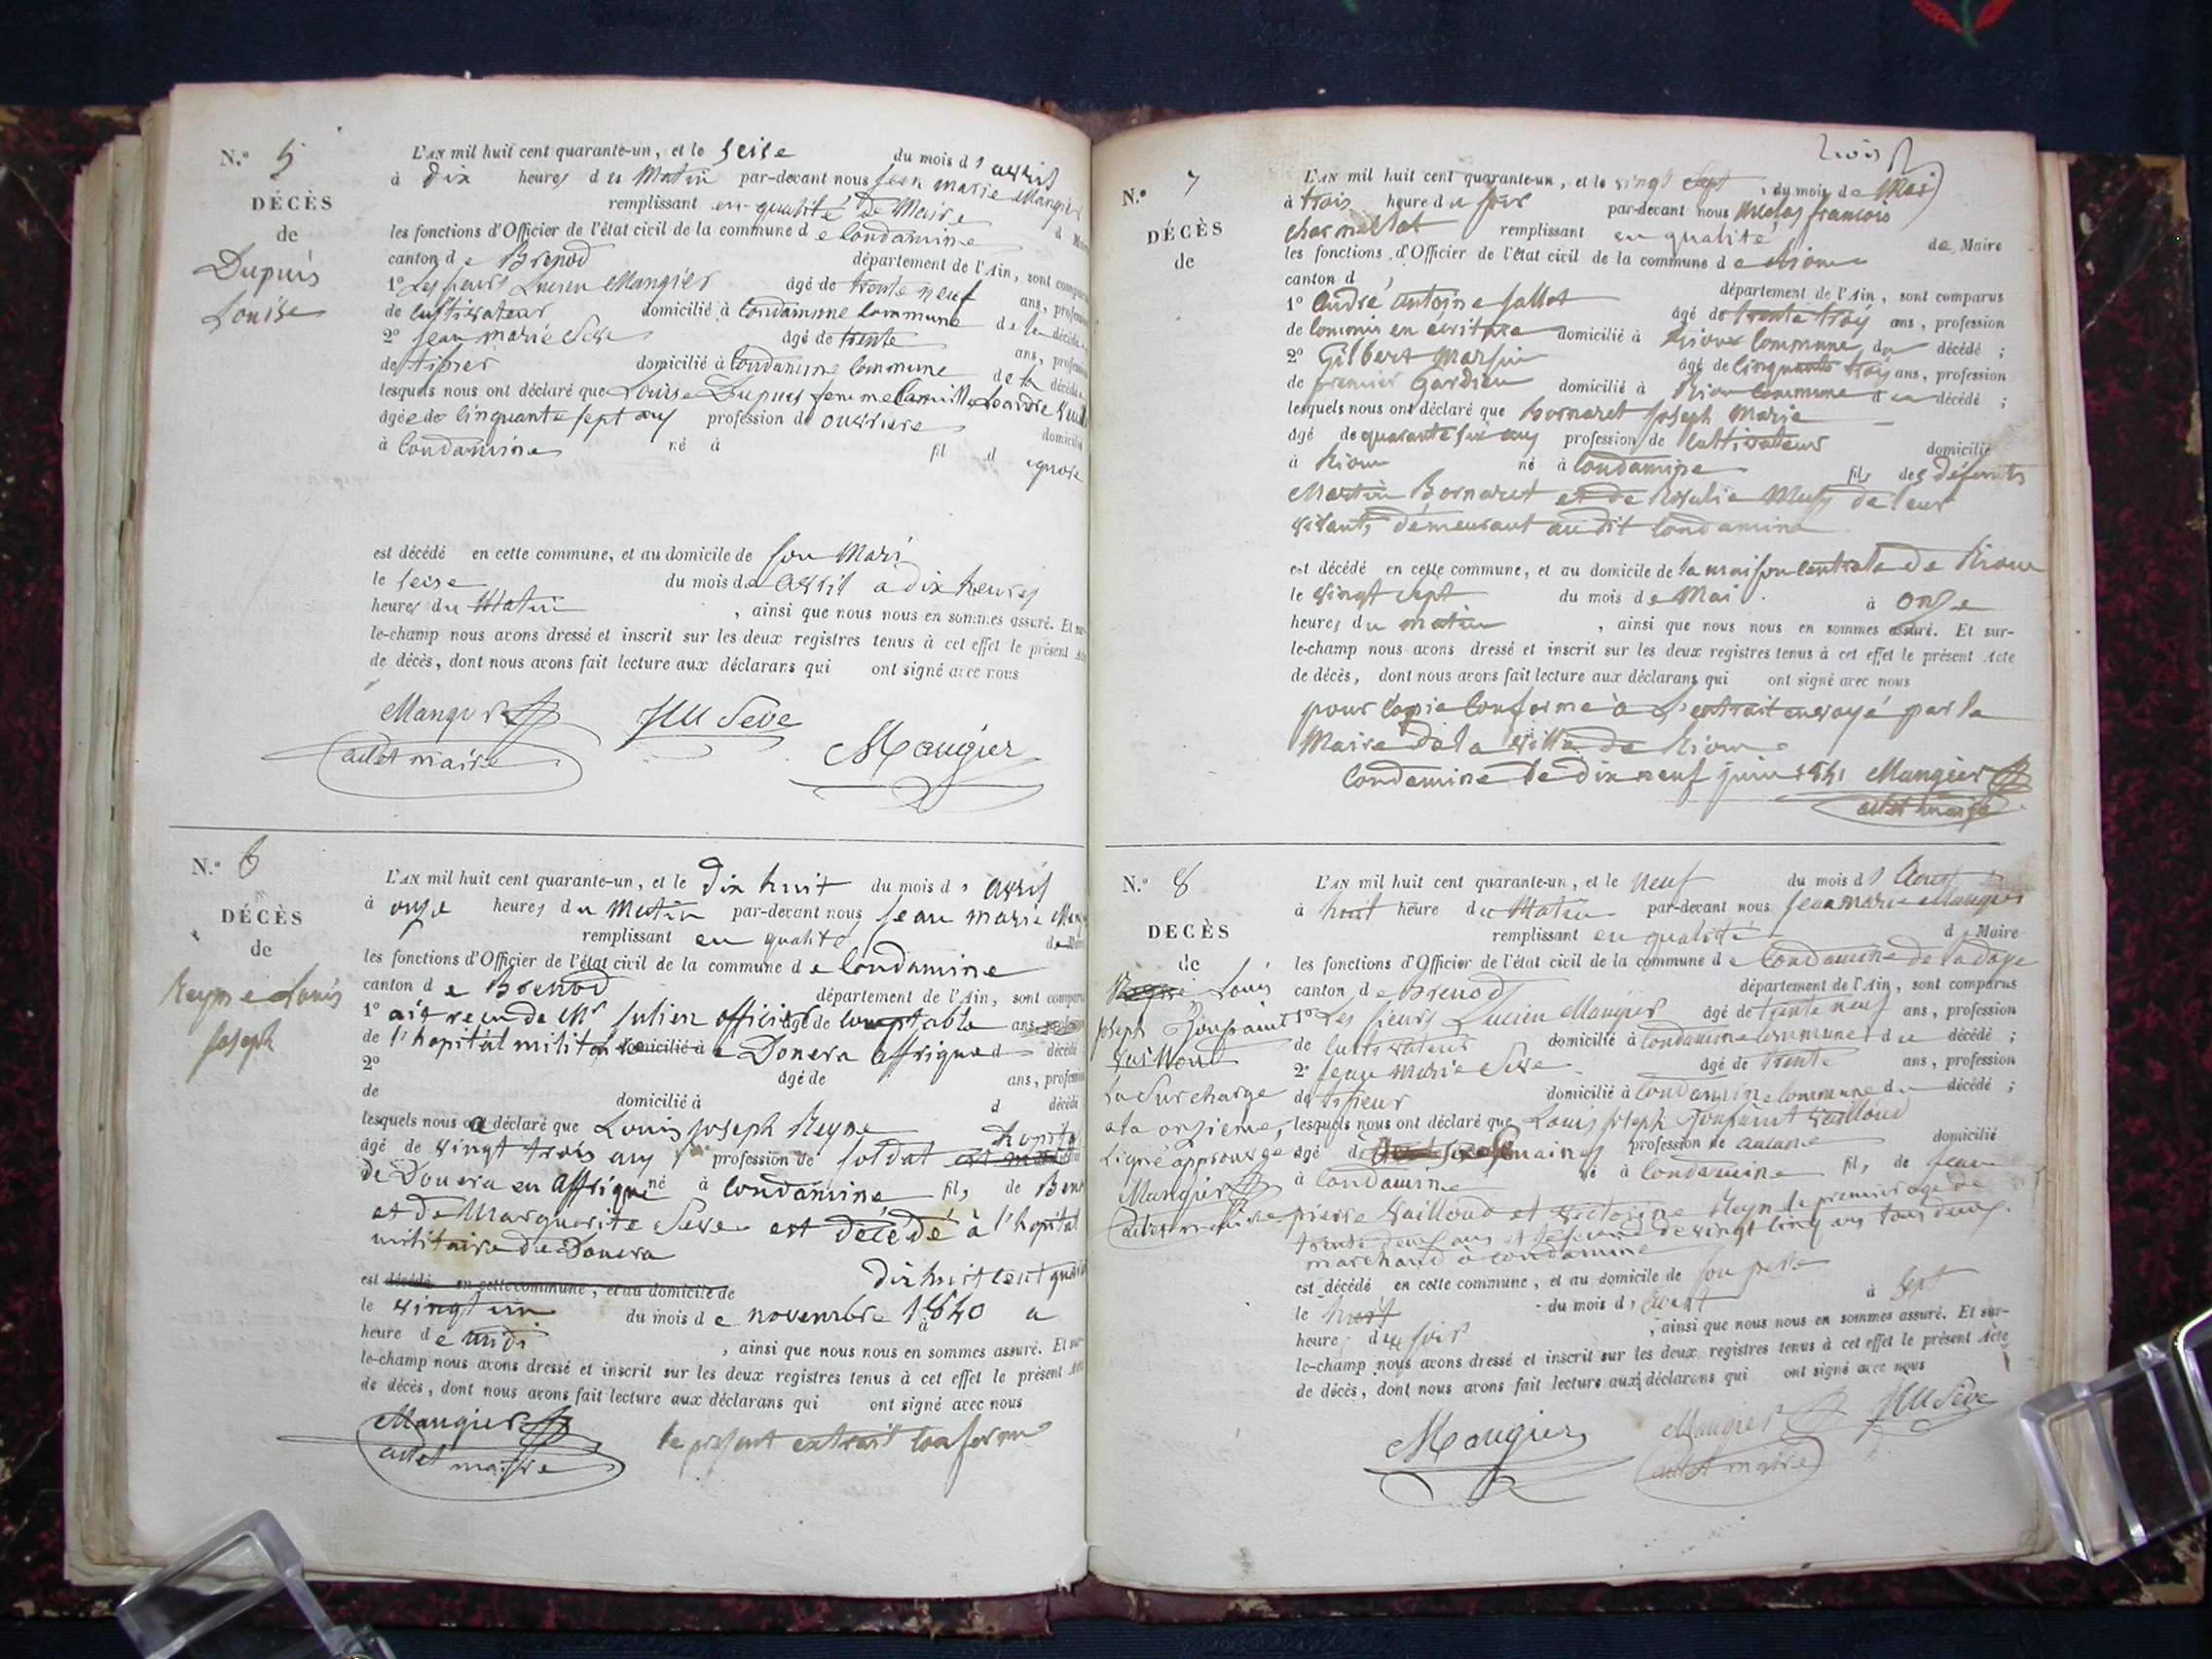 N.º 5
DÉCÈS
de
Dupuis
Louise
L'AN mil huit cent quarante-un, et le seise du mois d' avril
à dix heures du Matin par-devant nous jean marie Mangier
remplissant en qualité de Maire
les fonctions d'Officier de l'état civil de la commune de Condamine
canton de Brenod département de l'Ain, sont
1º Les sieurs Lucien Mangier âgé de trente neuf ans,
de Cultivateur domicilié à Condamine Commune de la décédée
2º jean marie Seve âgé de trente ans,
de domicilié à Condamine Commune de la décédée
lesquels nous ont déclaré que Louise Dupuis femme
âgée de Cinquante sept ans profession de ouvriere
à Condamine né à fil d
est décédé en cette commune, et au domicile de son Mari
le seise du mois de avril a dix heures
heures du Matin , ainsi que nous nous en sommes assuré. Et sur-
le-champ nous avons dressé et inscrit sur les deux registres tenus à cet effet le présent
de décès, dont nous avons fait lecture aux déclarans qui ont signé avec nous
Mangier JM Seve
maire Mangier
N.º 6
DÉCÈS
de
Reyne Louis
joseph
L'AN mil huit cent quarante-un, et le dix huit du mois d' avril
à onze heures du Matin par-devant nous jean marie
remplissant en qualité
les fonctions d'Officier de l'état civil de la commune de Condamine
canton de Brenod département de l'Ain, sont
1º de Mr julien officier âgé de comptable ans,
de l'hopital domicilié à Douera Affrique d décédé
2º âgé de ans,
de domicilié à d décédé
lesquels nous a déclaré que Louis joseph Reyne
âgé de vingt trois ans profession de soldat
de Douera en Affrique né à Condamine fils de
et de Marguerite Seve est décédé à l'hopital
militaire de Douera
est décédé en cette commune, et au domicile de
le vingt un du mois de novembre 1840 a
heure de midi à , ainsi que nous nous en sommes assuré. Et sur-
le-champ nous avons dressé et inscrit sur les deux registres tenus à cet effet le présent
de décès, dont nous avons fait lecture aux déclarans qui ont signé avec nous
Mangier le présent extrait conforme
maire
N.º 7
DÉCÈS
de
L'AN mil huit cent quarante-un, et le vingt sept du mois de Mai
à trois heure du soir par-devant nous françois
remplissant en qualité de Maire
les fonctions d'Officier de l'état civil de la commune de Riom
canton d département de l'Ain, sont comparus
1º André Antoine âgé de trente trois ans, profession
de Commis en écriture domicilié à Riom Commune du décédé ;
2º Gilbert âgé de Cinquante trois ans, profession
de premier Gardien domicilié à Riom Commune du décédé ;
lesquels nous ont déclaré que Bornaret joseph Marie
âgé de quarante six ans profession de Cultivateur domicilié
à Riom né à Condamine fils des défunts
Martin Bornaret et de Rosalie de leur
vivants demeurant au dit Condamine
est décédé en cette commune, et au domicile de la maison Centrale de Riom
le vingt sept du mois de Mai à onze
heures du matin , ainsi que nous nous en sommes assuré. Et sur-
le-champ nous avons dressé et inscrit sur les deux registres tenus à cet effet le présent Acte
de décès, dont nous avons fait lecture aux déclarans qui ont signé avec nous
pour Copie Conforme à l'extrait envoyé par le
Maire de la ville de Riom
Condamine le dix neuf juin 1841 Mangier
maire
N.º 8
DÉCÈS
de
Louis
joseph
La Surcharge
a la onzieme
Ligne
Mangier
maire
L'AN mil huit cent quarante-un, et le Neuf du mois d' Aout
à huit heure du Matin par-devant nous jean marie Mangier
remplissant en qualité d Maire
les fonctions d'Officier de l'état civil de la commune de Condamine de la doye
canton de Brenod département de l'Ain, sont comparus
1º Les sieurs Lucien Mangier âgé de trente neuf ans, profession
de Cultivateur domicilié à Condamine Commune du décédé ;
2º jean marie Seve âgé de trente ans, profession
de domicilié à Condamine Commune du décédé ;
lesquels nous ont déclaré que Louis joseph Vailloud
âgé de profession de aucune domicilié
à Condamine né à Condamine fils de jean
pierre Vailloud et Victorine Reyne le premier age de
trente deux ans et la seconde de vingt cinq ans tous deux
marchand à Condamine
est décédé en cette commune, et au domicile de son pere
le huit du mois d' aout à sept
heure du soir , ainsi que nous nous en sommes assuré. Et sur-
le-champ nous avons dressé et inscrit sur les deux registres tenus à cet effet le présent Acte
de décès, dont nous avons fait lecture aux déclarans qui ont signé avec nous
Mangier Mangier JM Seve
maire